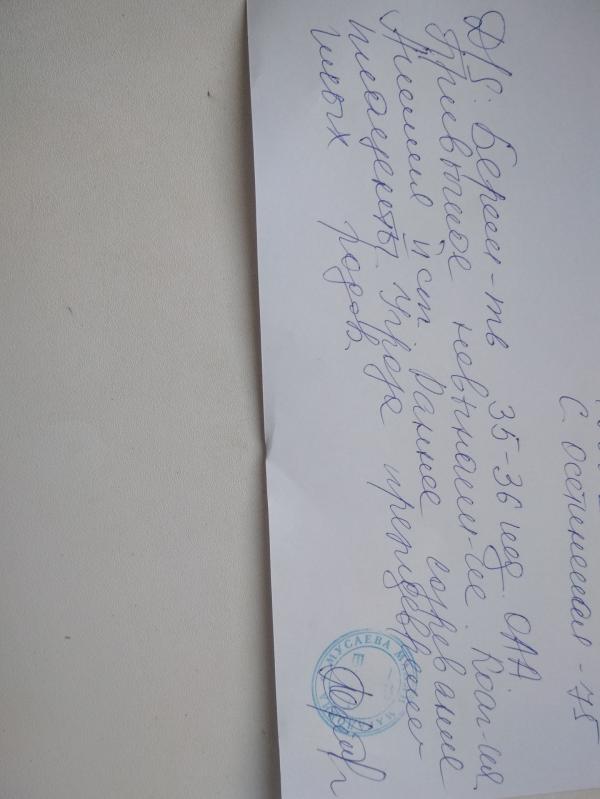 С. Осетинская - 75
D/S: Берем-ть 35-36 нед. ОАА
Привычное невынаш-ие. Коаг-ия.
Анемия II ст. Раннее созревание
плаценты. Угроза преждевремен
ных родов.
МУСАЕВА М